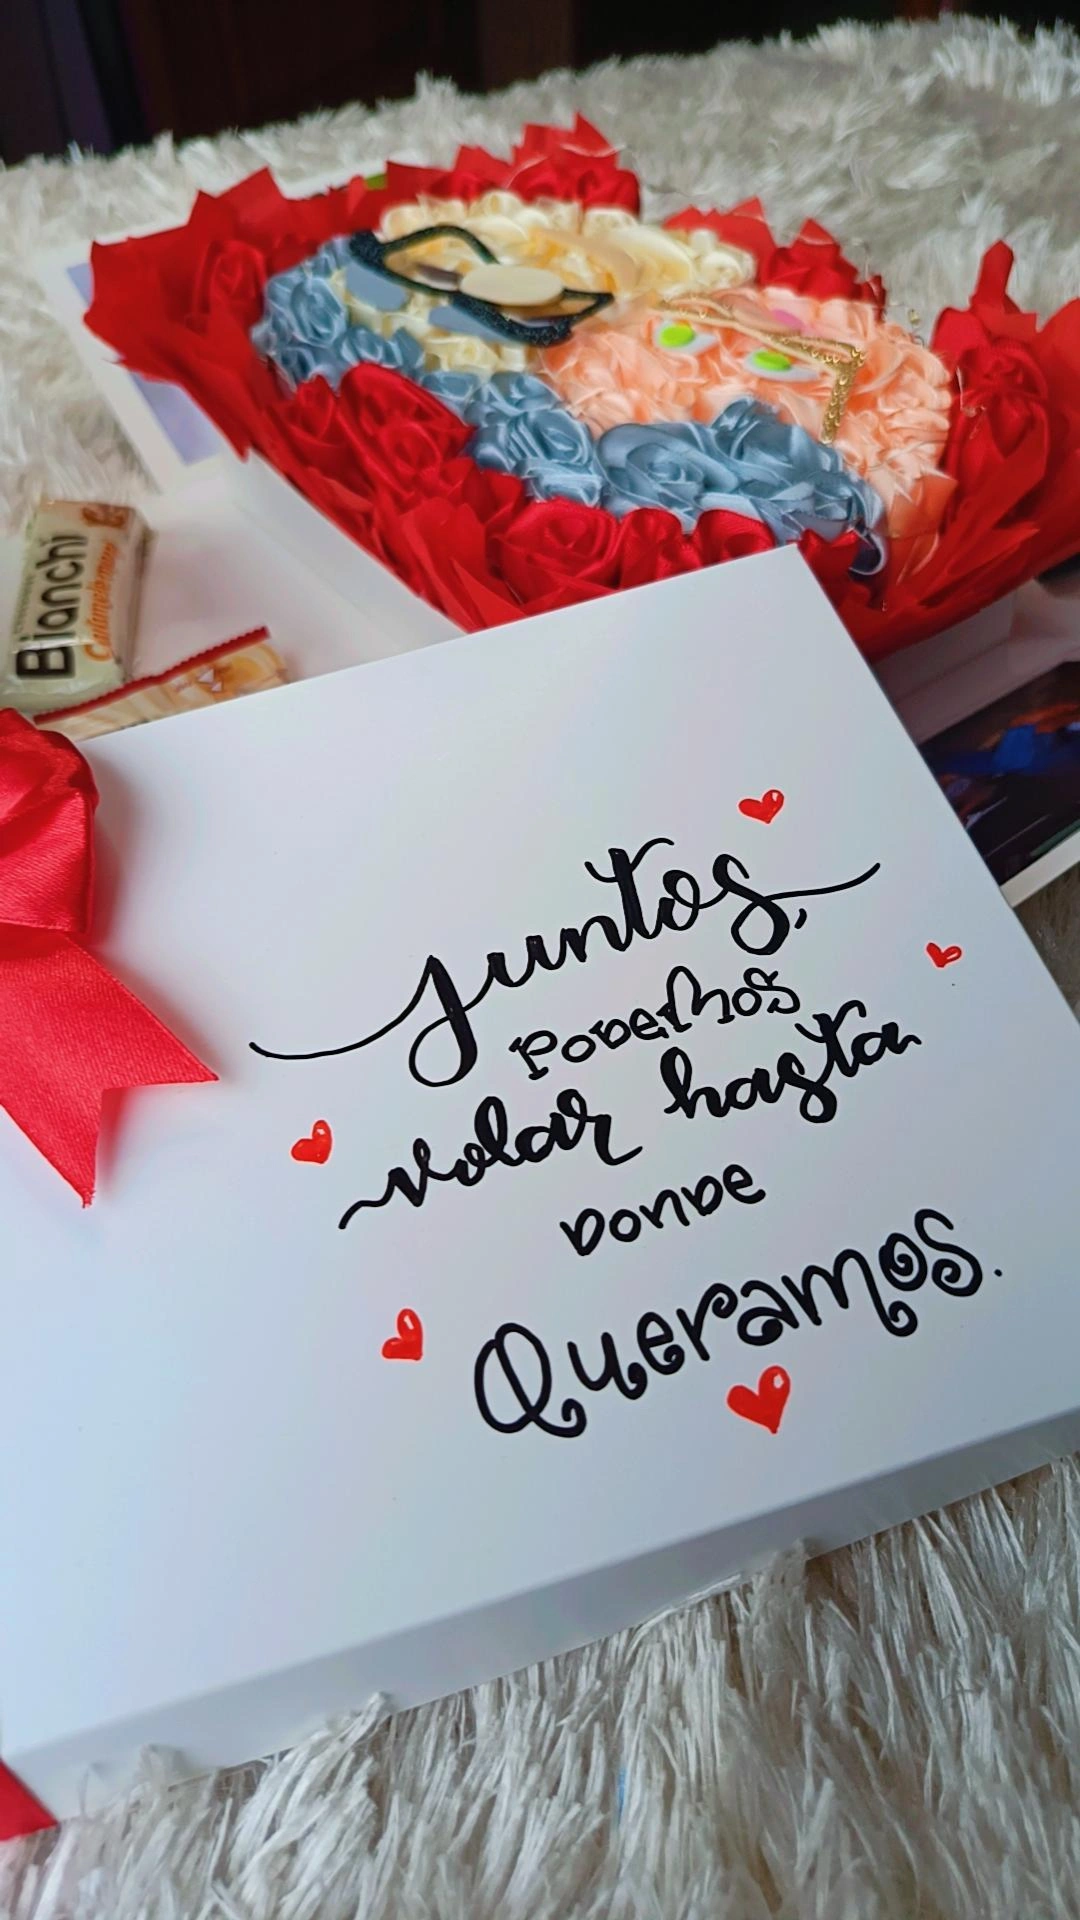 Bianchi
Juntos,
Podemos
volar hasta
Donde
Queramos.